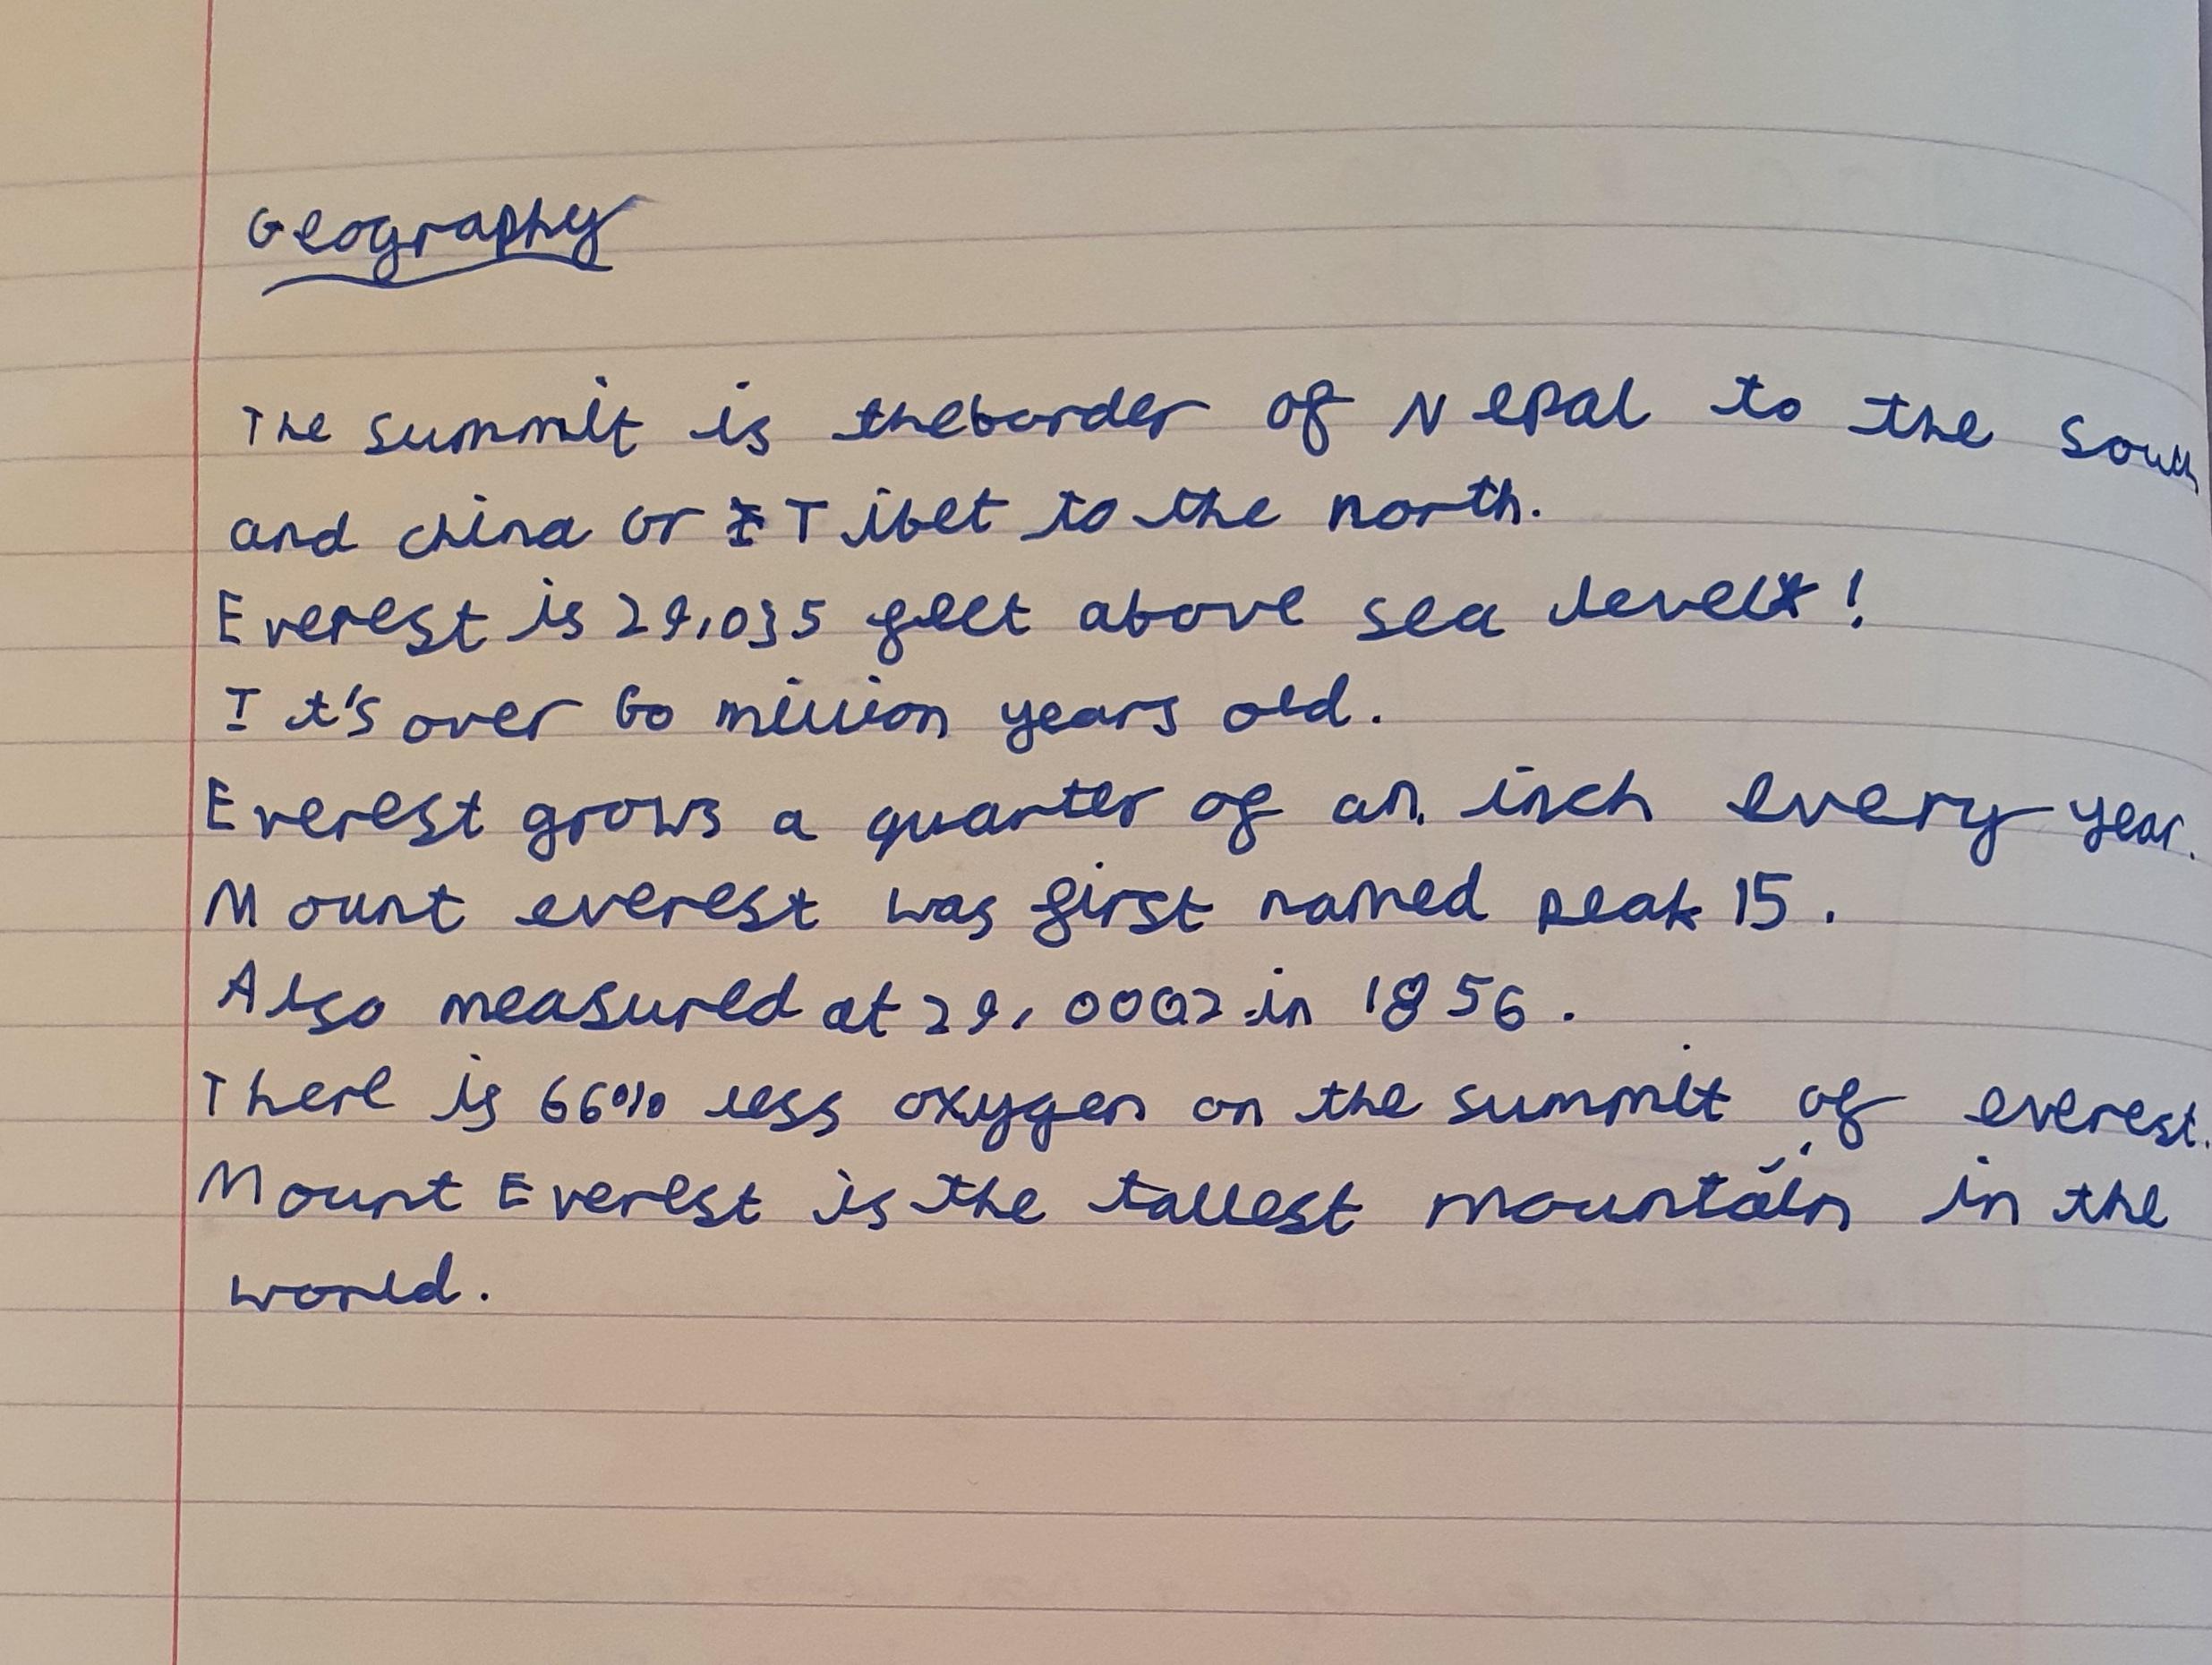 Geography
The summit is theborder of Nepal to the south
and china or Tibet to the north.
Everest is 29,035 feet above sea level!
It's over 60 million years old.
Everest grows a quarter of an inch every year.
Mount everest was first named peak 15.
Also measured at 29,0002 in 1856.
There is 66% less oxygen on the summit of everest.
Mount Everest is the tallest mountain in the
world.